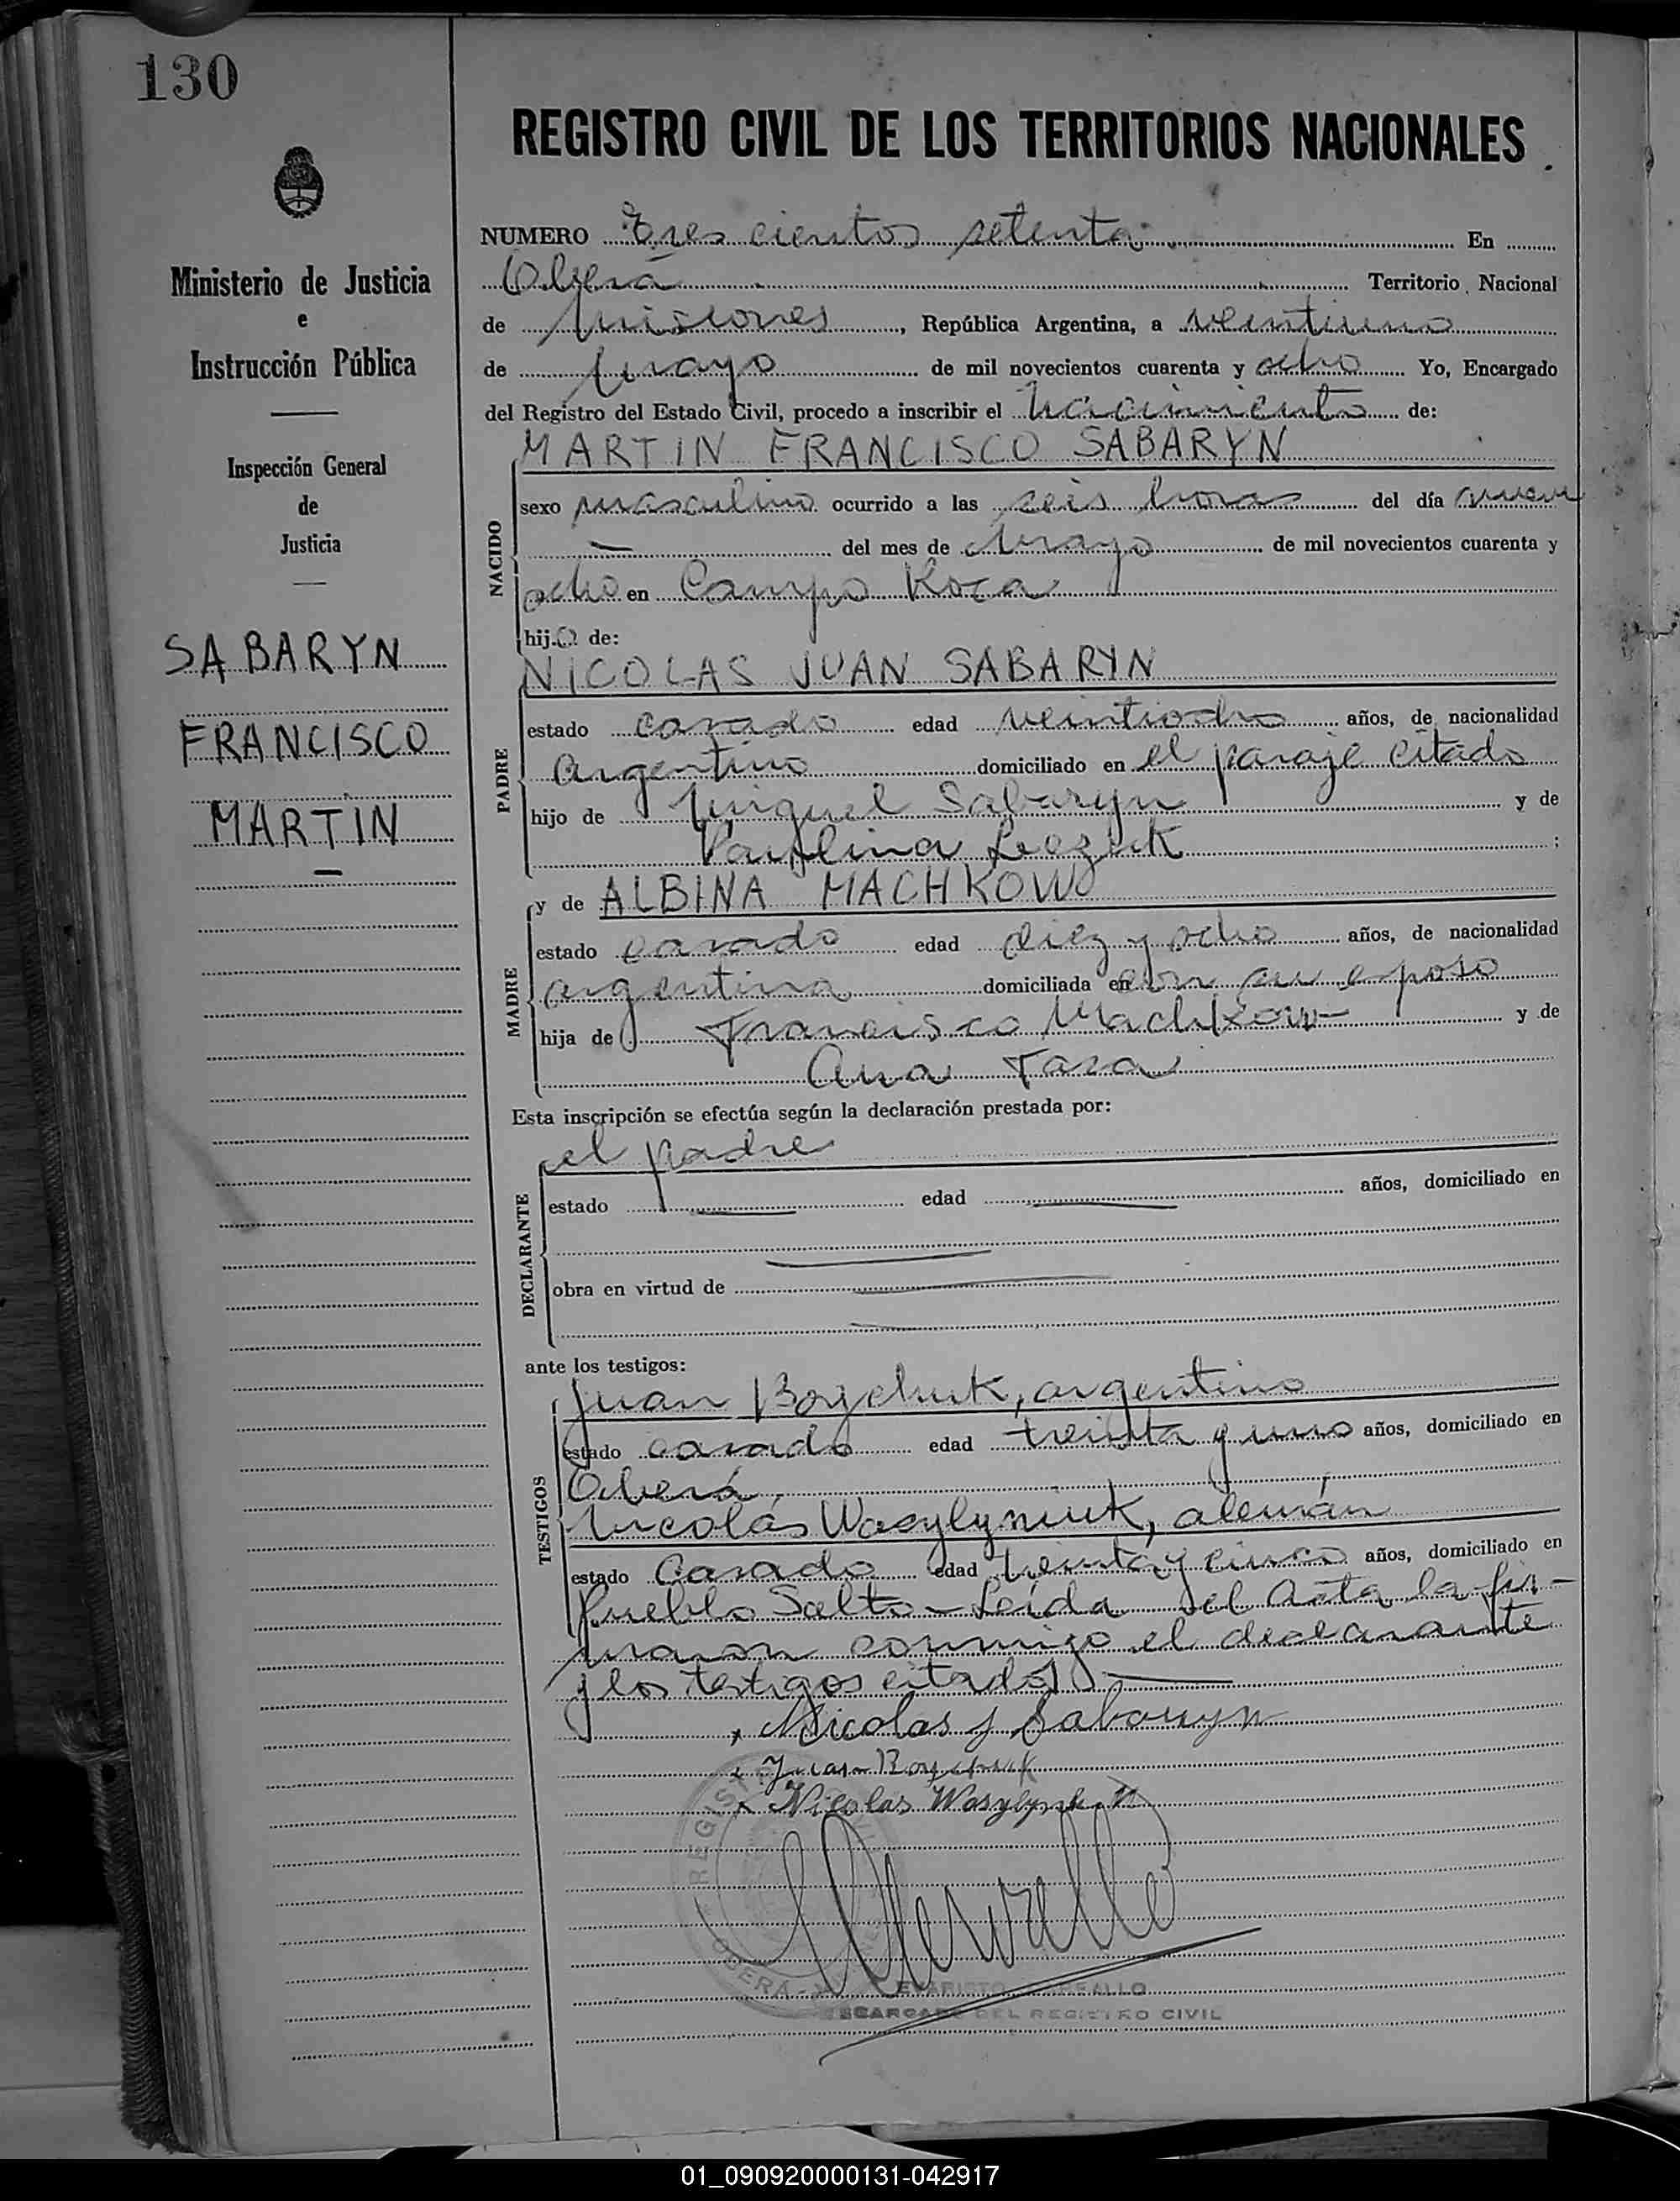 130
REGISTRO CIVIL DE LOS TERRITORIOS NACIONALES
Ministerio de Justicia
e
Instrucción Pública
Inspección General
de
Justicia
SABARYN
FRANCISCO
MARTIN
NUMERO Tres cientos setenta En
Oberá Territorio Nacional
de Misiones, República Argentina, a veintiuno
de Mayo de mil novecientos cuarenta y ocho Yo, Encargado
del Registro del Estado Civil, procedo a inscribir el Nacimiento de:
MARTIN FRANCISCO SABARYN
NACIDO
sexo masculino ocurrido a las seis horas del día nueve
— del mes de Mayo de mil novecientos cuarenta y
ocho en Campo Roca
hijo de:
NICOLAS JUAN SABARYN
PADRE
estado casado edad veintiocho años, de nacionalidad
argentino domiciliado en el paraje citado
hijo de Miguel Sabaryn y de
Paulina ;
y de ALBINA MACHKOW
MADRE
estado casado edad diez y ocho años, de nacionalidad
argentina domiciliada en con su esposo
hija de Francisco Machkow y de
Ana Tara
Esta inscripción se efectúa según la declaración prestada por:
el padre
DECLARANTE
estado — edad — años, domiciliado en
obra en virtud de —
ante los testigos:
Juan Boychuk, argentino
TESTIGOS
estado casado edad treinta y uno años, domiciliado en
Oberá
Nicolás Wasylyniuk, alemán
estado Casado edad treinta y cinco años, domiciliado en
Pueblo Salto - Leída el Acta la fir-
maron conmigo el declarante
y los testigos citados —
Nicolas J Sabaryn
Juan Boychuk
Nicolas
REGISTRO
OBERÁ
ENCARGADO DEL REGISTRO CIVIL
01_090920000131-042917